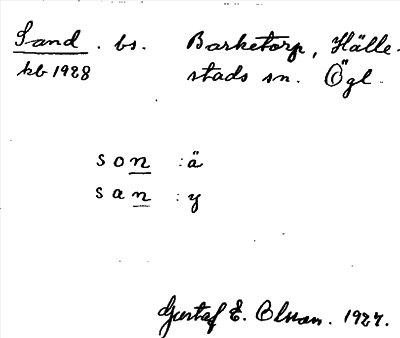 Sand . bs. Barketorp, Hälle-
kb 1928 stads sn. Ögl.
son :ä
san :y
Gustaf E. Olsson. 1927.